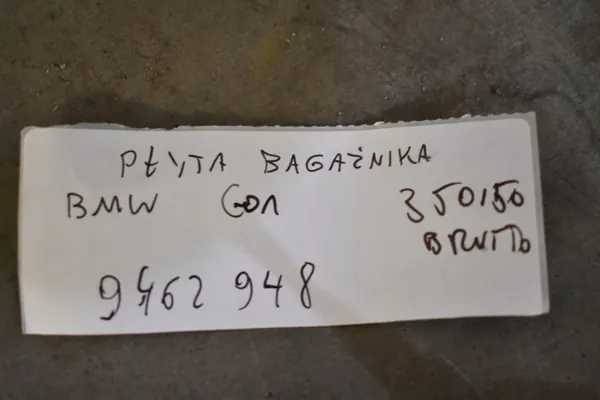 PŁYTA BAGAŻNIKA
BMW G01 350,50
BRUTTO
9462 948